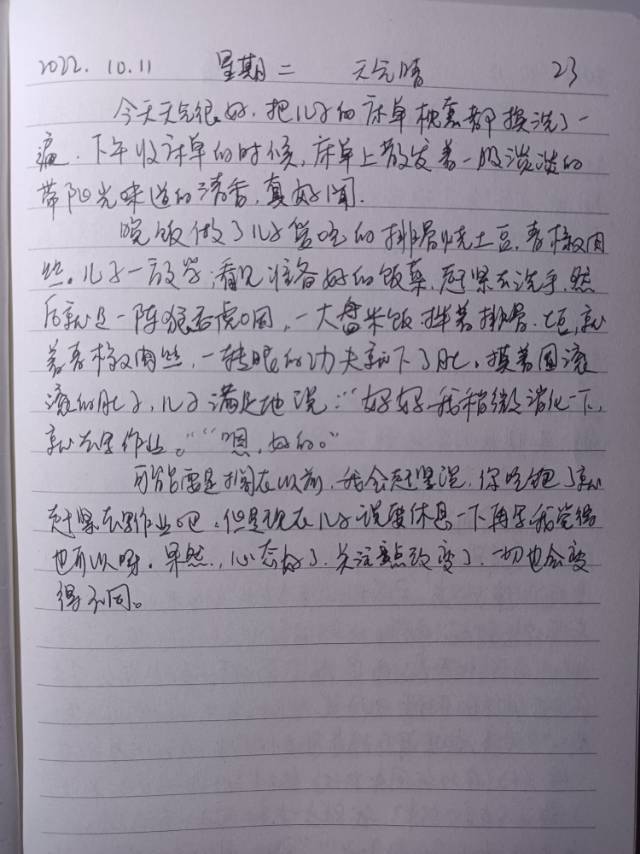 2022.10.11 星期二 天气晴 23
今天天气很好，把儿子的床单枕套都换洗了一
遍．下午收床单的时候，床单上散发着一股淡淡的
带阳光味道的清香，真好闻．
晚饭做了儿子爱吃的排骨烧土豆，青椒肉
丝。儿子一放学，看见准备好的饭菜，赶紧去洗手，然
后就是一阵狼吞虎咽，一大盘米饭拌着排骨、土豆，就
着青椒肉丝，一转眼的功夫就下了肚。摸着圆滚
滚的肚子，儿子满足地说：“妈妈我稍微消化一下，
就去写作业。”“嗯，好的。”
可能要是搁在以前，我会赶紧说，你吃抱了就
赶紧去写作业吧，但是现在儿子说要休息一下再写我觉得
也可以呀．果然，心态好了，关注点改变了，一切也会变
得不同。